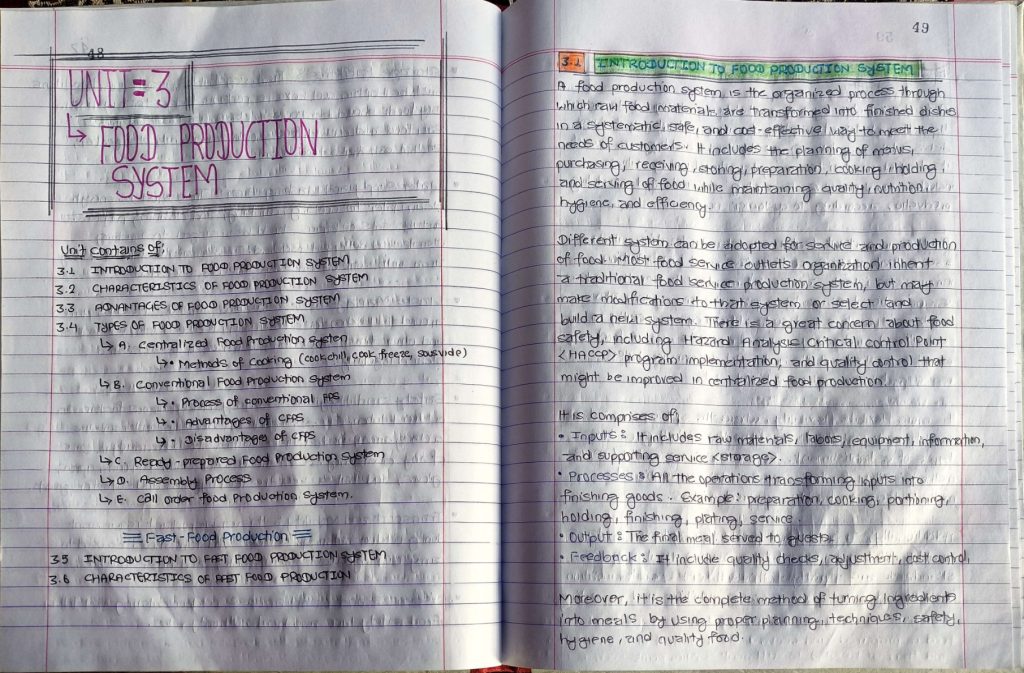 48
UNIT = 3
↳ FOOD PRODUCTION
SYSTEM
Unit contains of;
3.1 INTRODUCTION TO FOOD PRODUCTION SYSTEM
3.2 CHARACTERISTICS OF FOOD PRODUCTION SYSTEM
3.3 ADVANTAGES OF FOOD PRODUCTION SYSTEM
3.4 TYPES OF FOOD PRODUCTION SYSTEM
↳ A. Centralized Food Production System
↳ • Methods of Cooking (cook chill, cook freeze, sous vide)
↳ B. Conventional Food Production System
↳ • Process of conventional FPS
↳ • Advantages of CFPS
↳ • Disadvantages of CFPS
↳ C. Ready-prepared Food Production System
↳ D. Assembly Process
↳ E. Call order food Production System.
Fast-Food Production
3.5 INTRODUCTION TO FAST FOOD PRODUCTION SYSTEM
3.6 CHARACTERISTICS OF FAST FOOD PRODUCTION
49
3.1 INTRODUCTION TO FOOD PRODUCTION SYSTEM
A food production system is the organized process through
which raw food materials are transformed into finished dishes
in a systematic, safe, and cost-effective way to meet the
needs of customers. It includes the planning of menus,
purchasing, receiving, storing, preparation, cooking, holding,
and serving of food while maintaining quality, nutrition,
hygiene, and efficiency.
Different system can be adopted for service and production
of food. Most food service outlets organization inherit
a traditional food service production system, but may
make modifications to that system or select and
build a new system. There is a great concern about food
safety, including Hazard Analysis Critical Control Point
<HACCP> program implementation, and quality control that
might be improved in centralized food production.
It is comprises of;
• Inputs : It includes raw materials, labors, equipment, information,
and supporting service <storage>.
• Processes : All the operations transforming inputs into
finishing goods. Example: preparation, cooking, portioning,
holding, finishing, plating, service.
• Output : The final meal served to guests.
• Feedback : It include quality checks, adjustment, cost control,
Moreover, it is the complete method of turning ingredients
into meals by using proper planning, techniques, safety,
hygiene, and quality food.